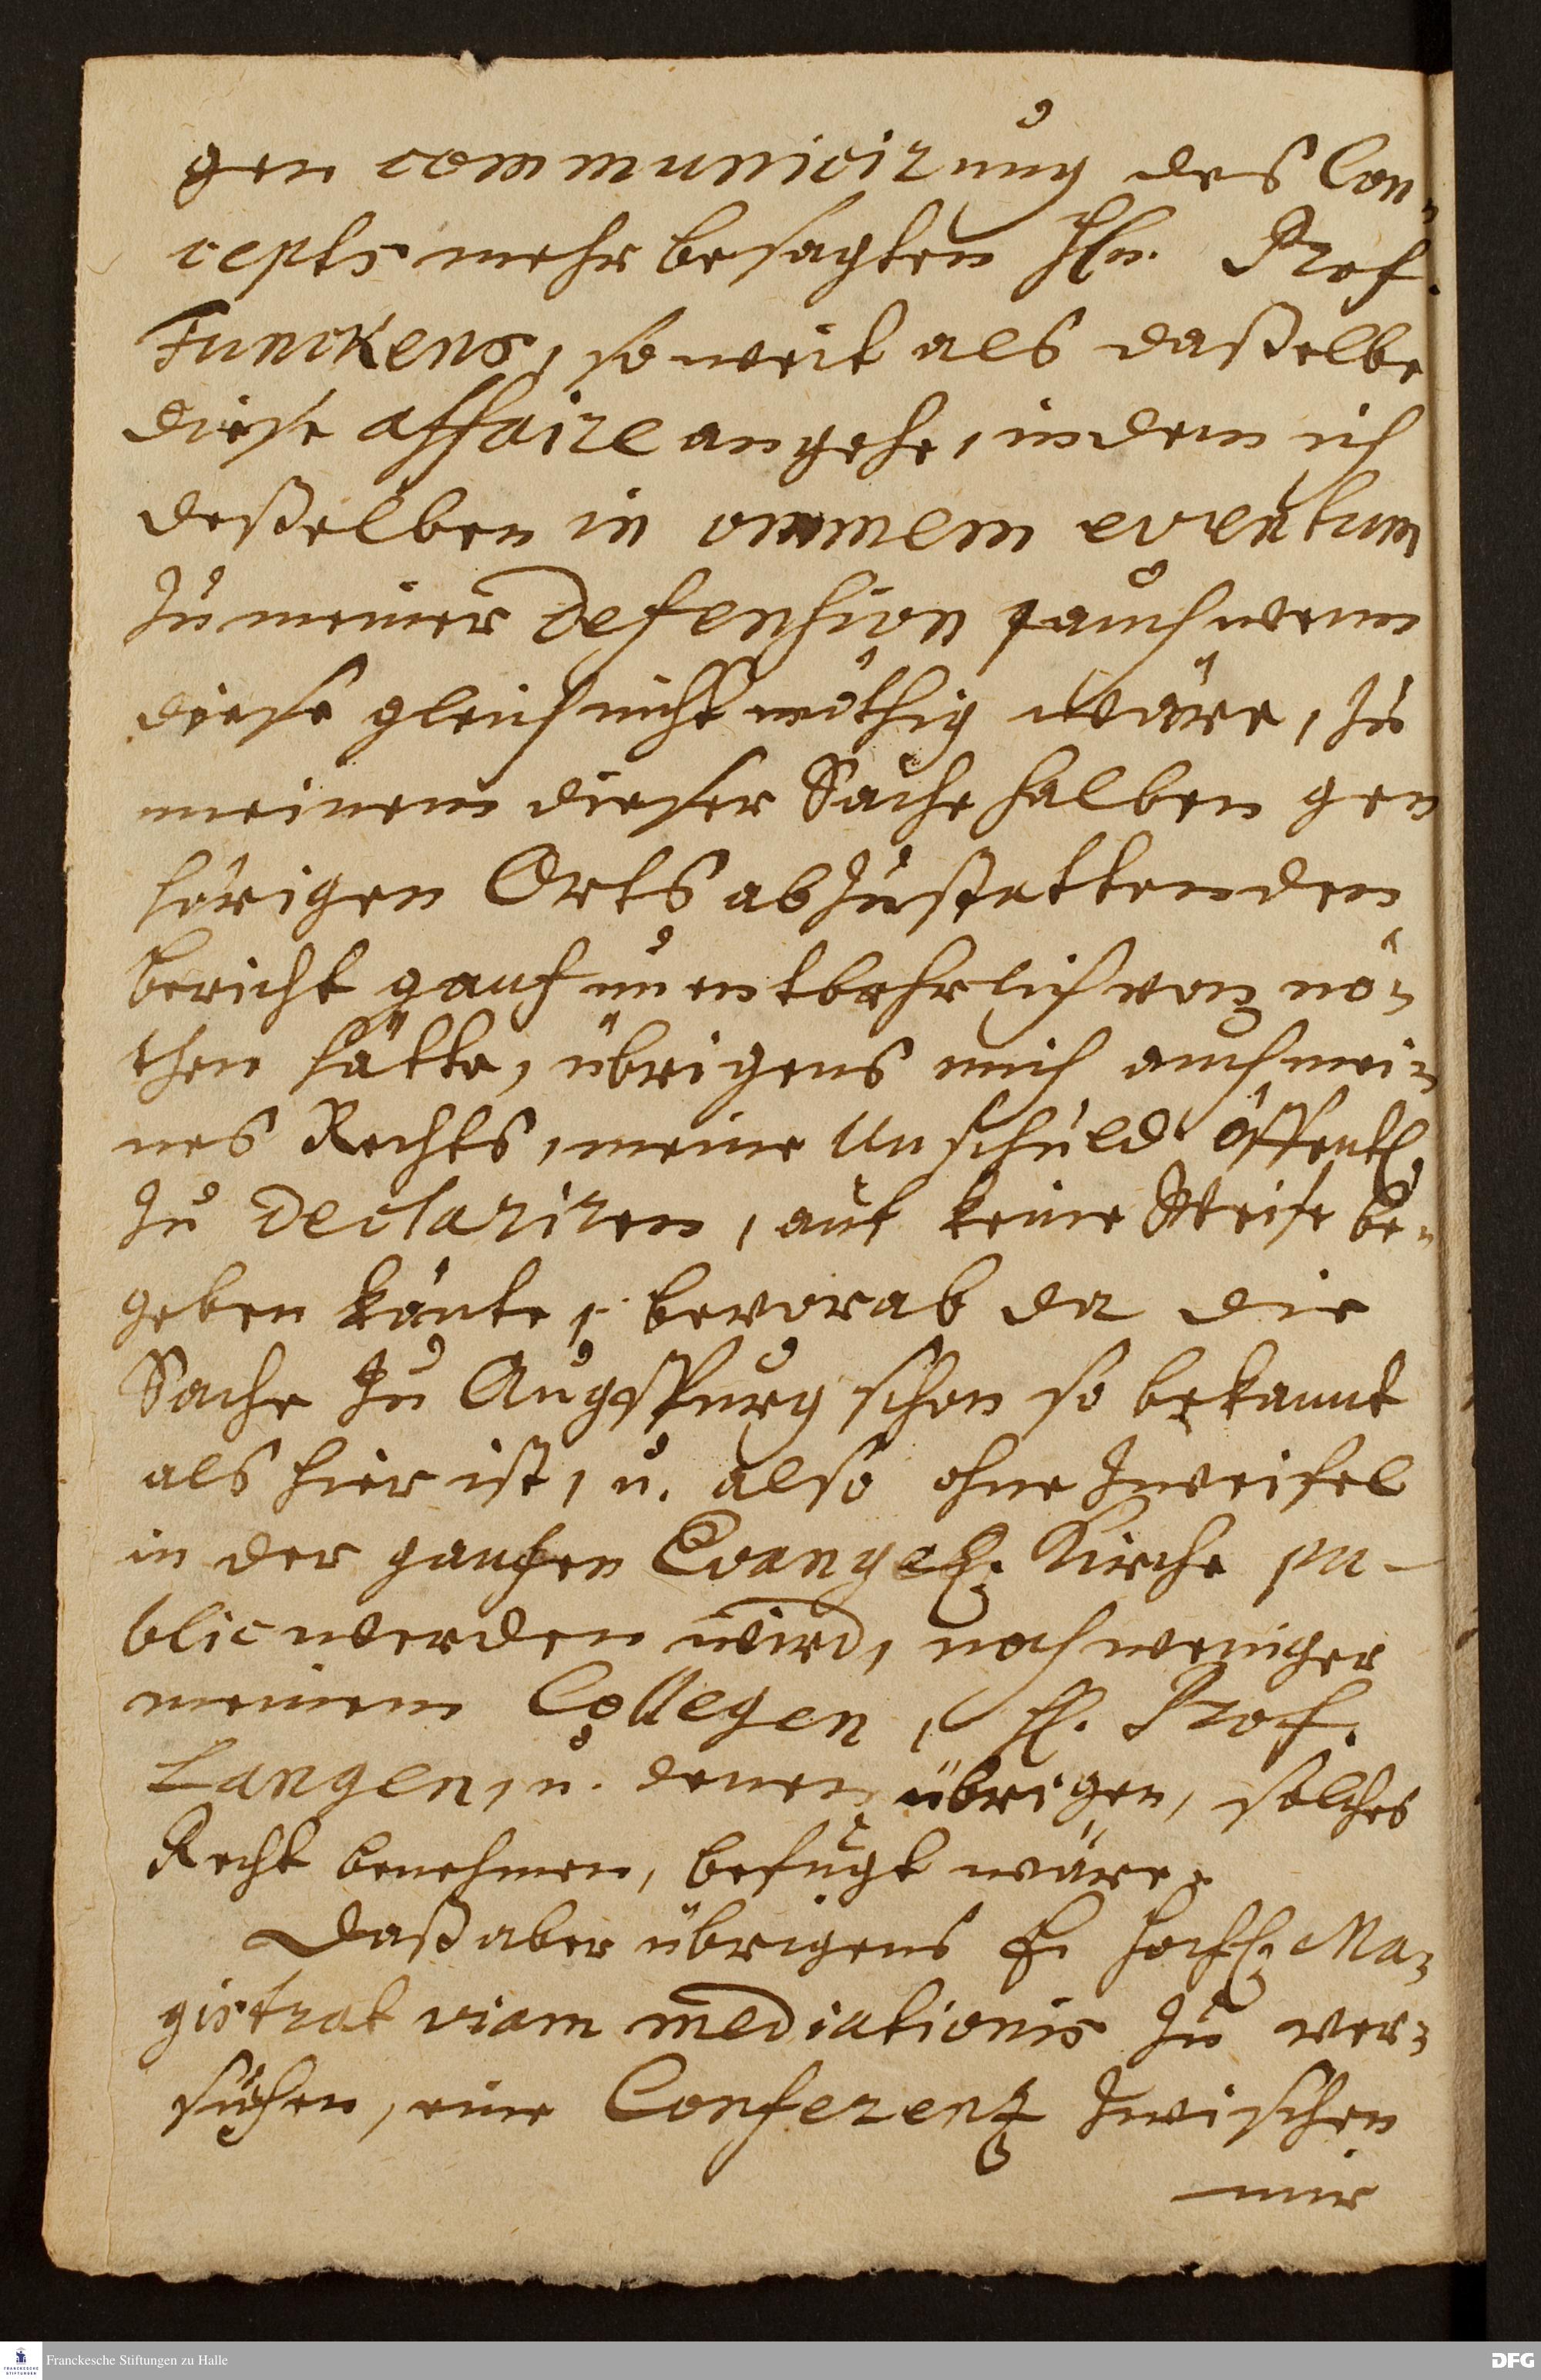 gen communicirung des Con-
cepts mehr besagten Hln. Prof.
Funckens, so weit als daßelbe
diese affaire angehe, indem ich
deßelben in omnem eventum
zu meiner Defension auch wenn
diese gleich nicht nöthig wäre, zu
meinem dieser Sache halben ge-
hörigen Orts abzustattenden
Bericht gantz unentbehrlich von nö-
then hätte, übrigens mich auch mei-
nes Rechts, meine Unschuld öffentl.
zu declariren, auf keine Weise be-
geben könte, bevorab da die
Sache zu Augspurg schon so bekannt
als hier ist, u. also ohne Zweifel
in der gantzen Evangel. Kirche pu-
blic werden wird, noch weniger
meinem Collegen, H. Prof.
Langen, u. denen übrigen, solches
Recht benehmen, befugt wäre.
Daß aber übrigens E. Hochl. Ma-
gistrat viam mediationis zu ver-
suchen, eine Conferentz zwischen
mir
Franckesche Stiftungen zu Halle
FRANCKESCHE STIFTUNGEN
DFG